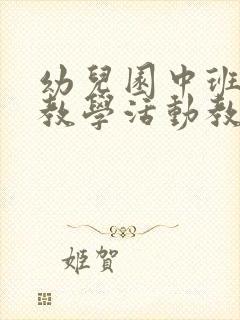 幼兒園中班
教學活動教
姬賀